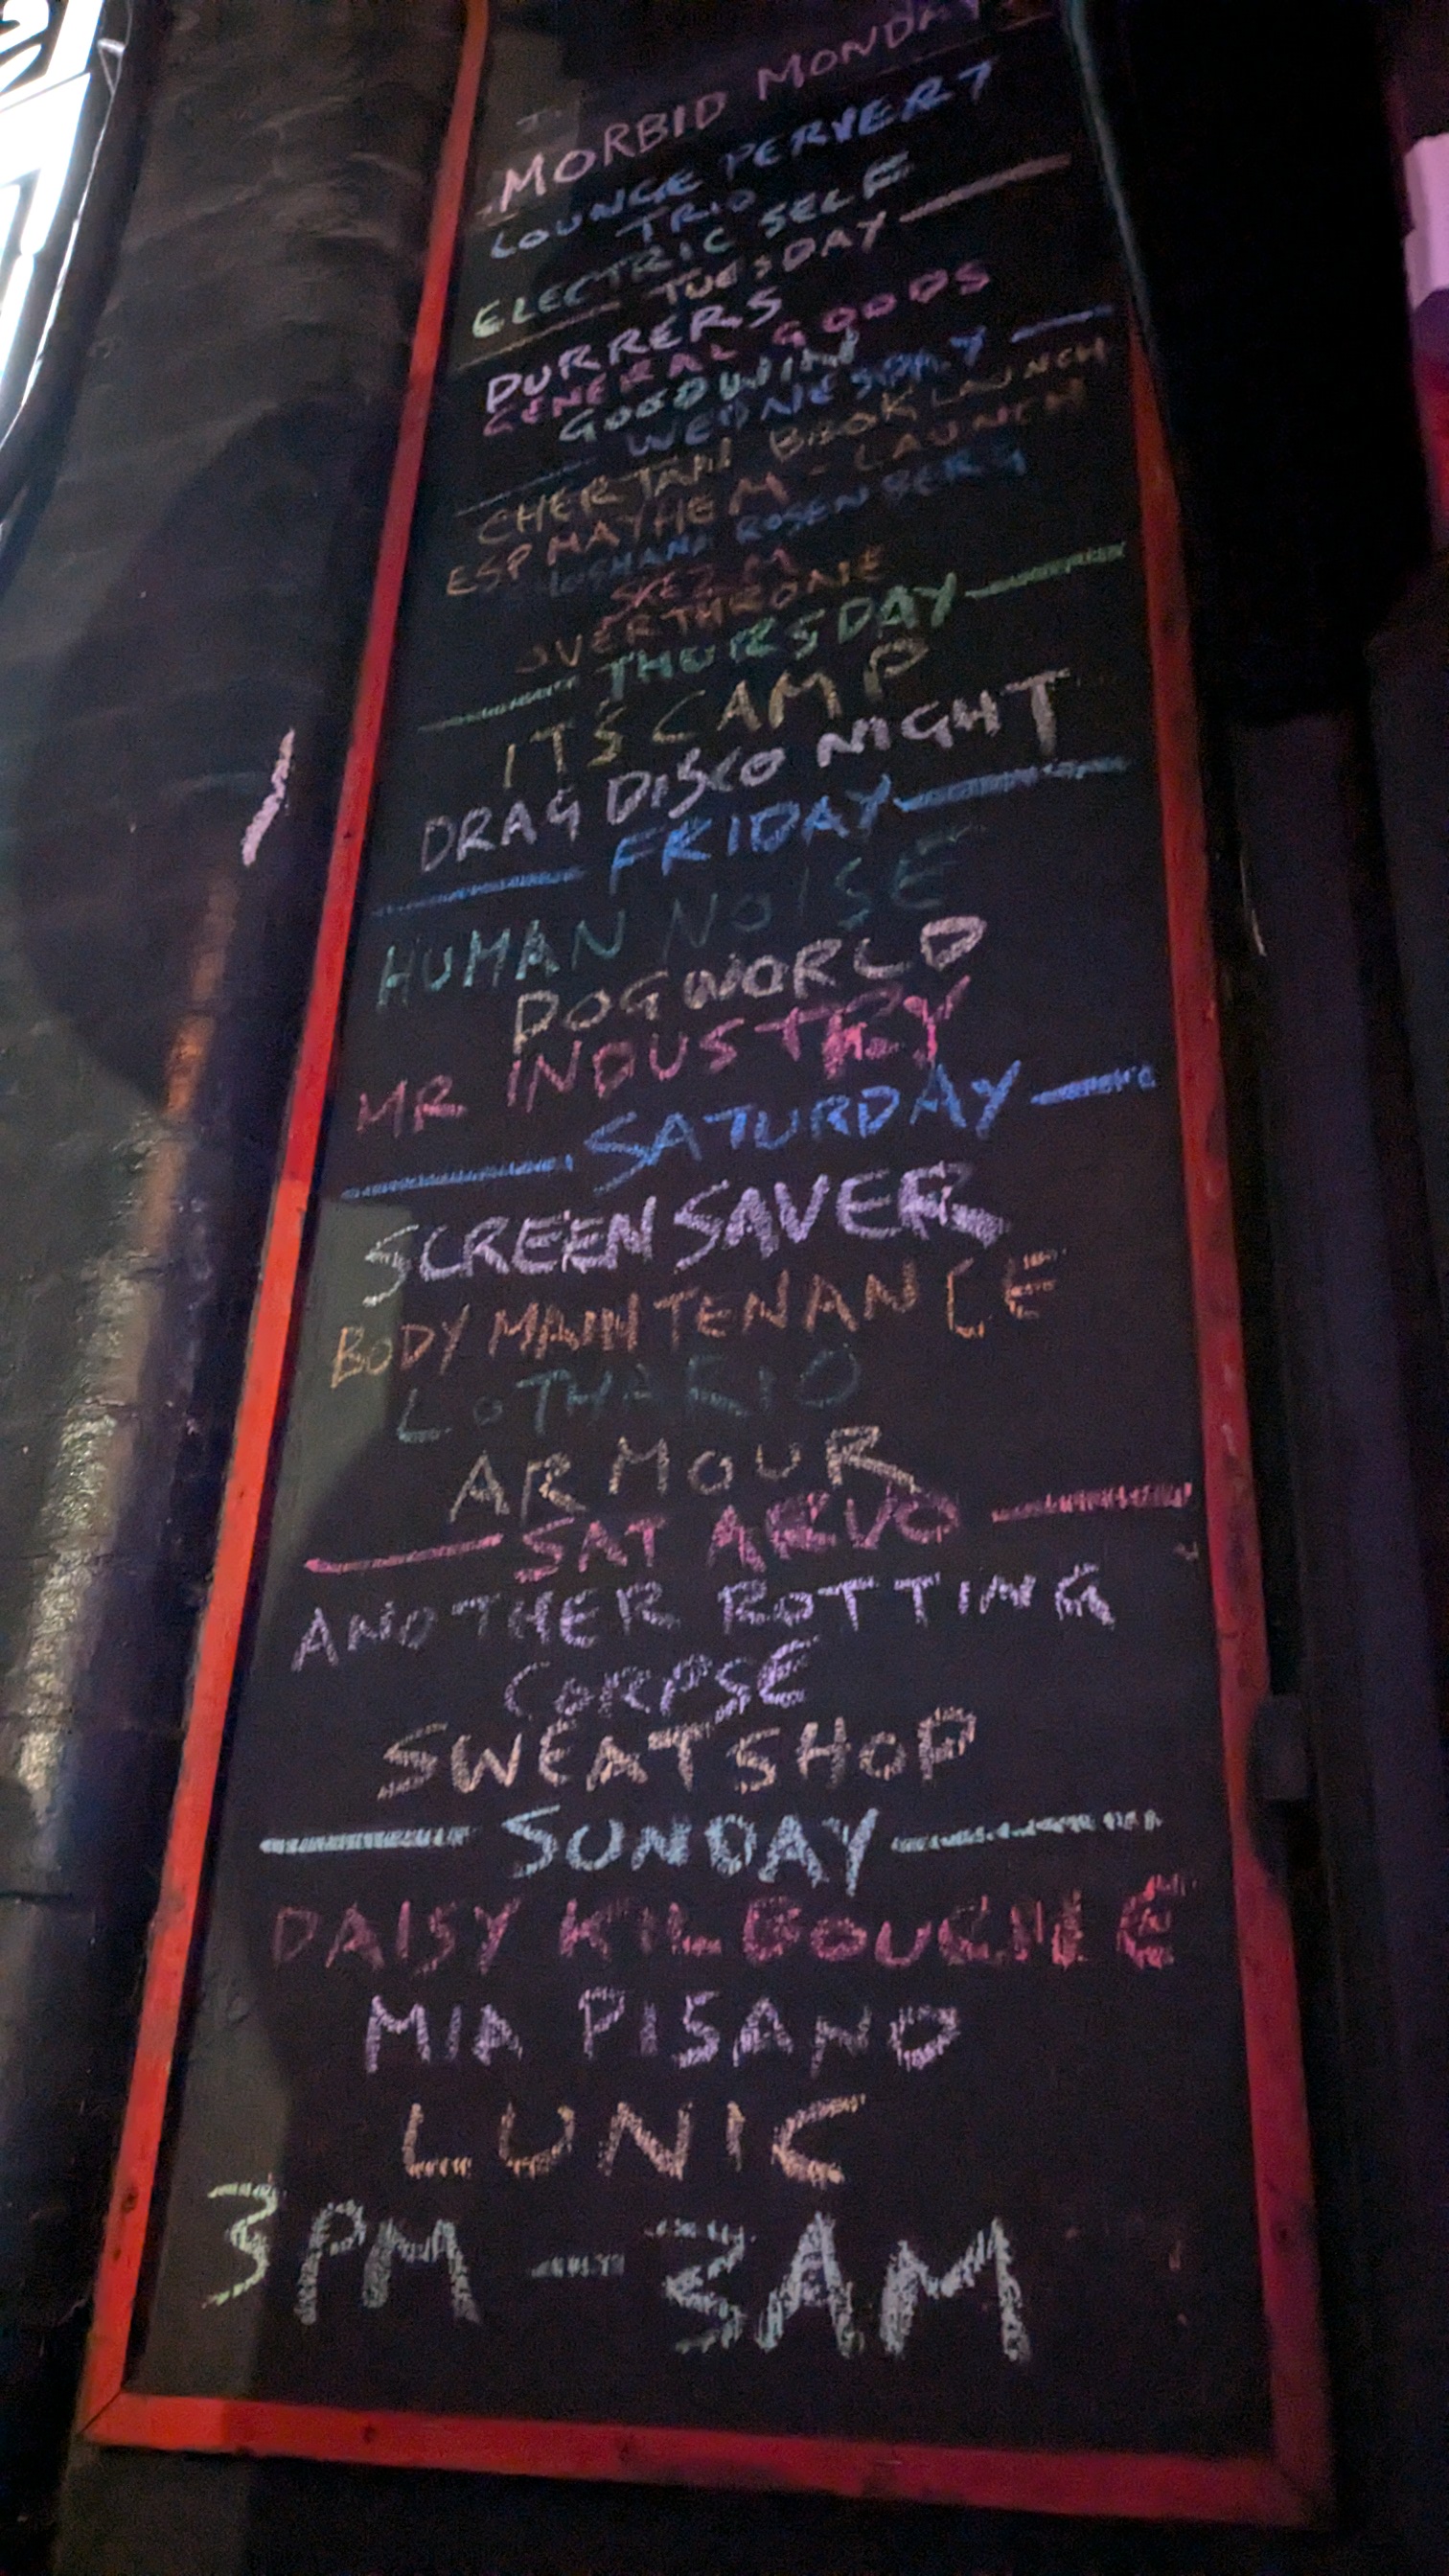 MORBID MONDAY
LOUNGE PERVERT
TRIO
ELECTRIC SELF
TUESDAY
DURRERS
GENERAL GOODS
GOODWIN
WEDNESDAY
CHERTAN BOOK LAUNCH
ESP MAYHEM - LAUNCH
ROSENBERG
OVERTHRONE
THURSDAY
ITS CAMP
DRAG DISCO NIGHT
FRIDAY
HUMAN NOISE
DOGWORLD
MR INDUSTRY
SATURDAY
SCREENSAVER
BODY MAINTENANCE
LOTHARIO
ARMOUR
SAT ARVO
ANOTHER ROTTING
CORPSE
SWEATSHOP
SUNDAY
DAISY KILBOURNE
MIA PISANO
LUNIC
3PM - 3AM